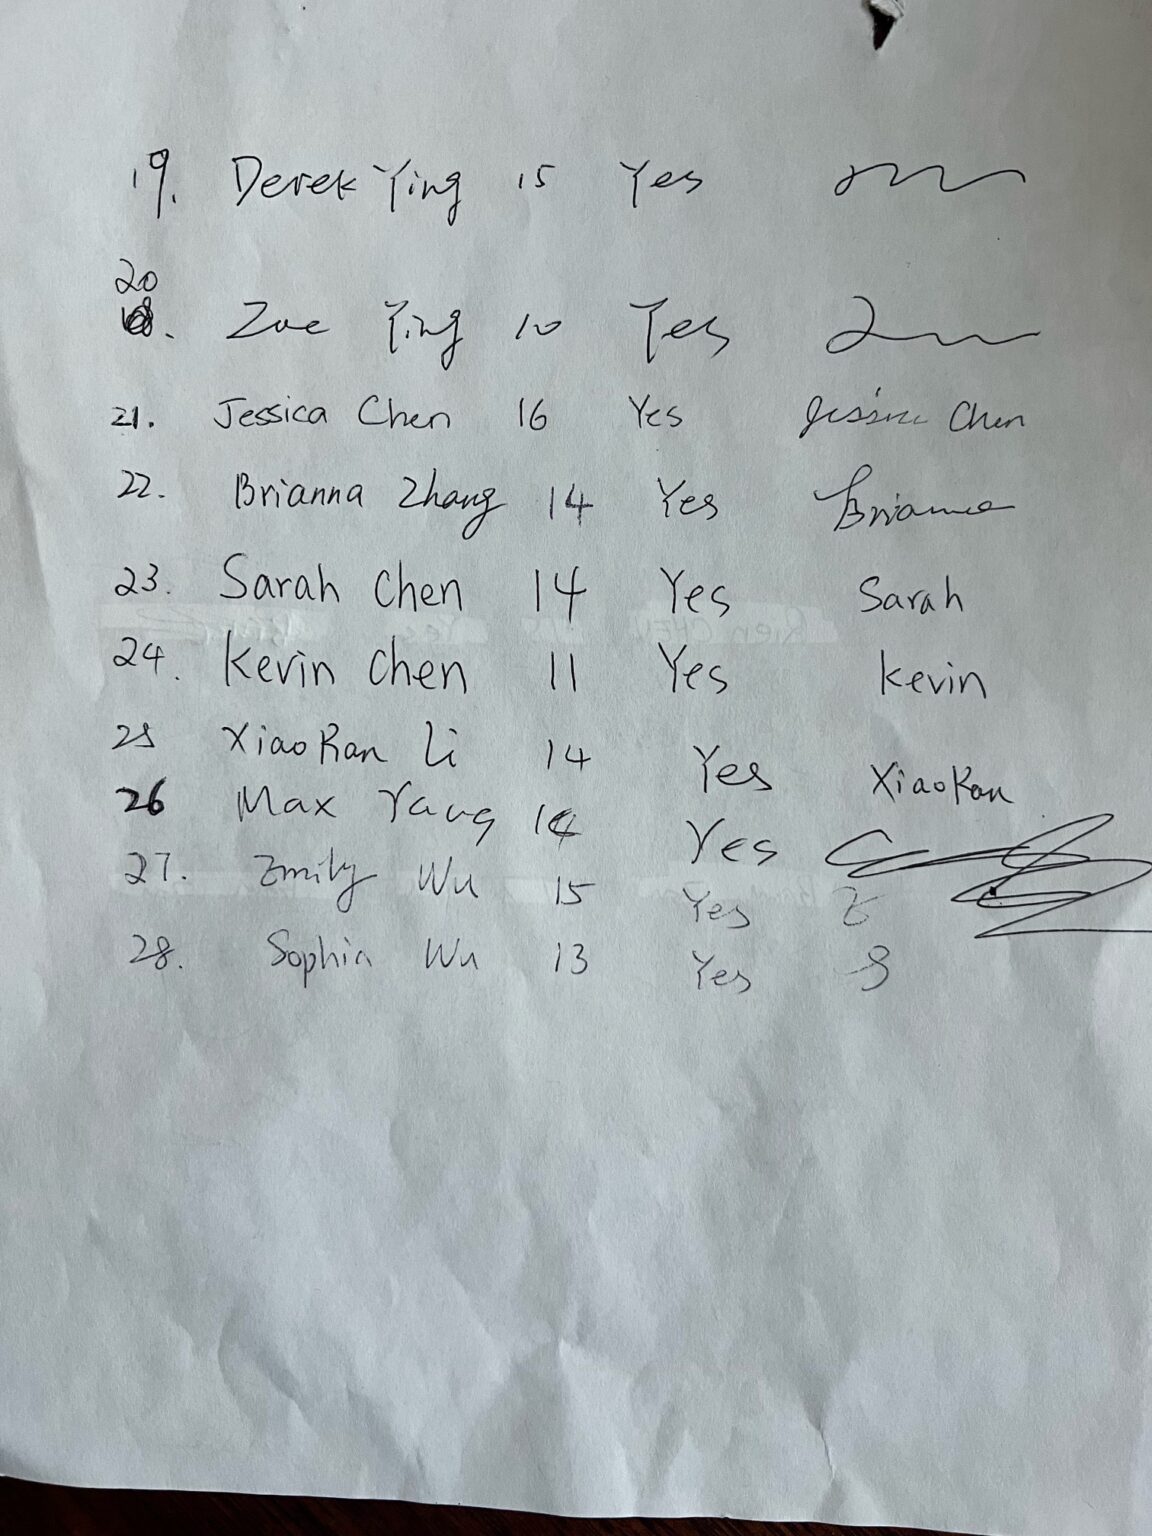 19. Derek Ying 15 Yes
20
. Zoe Ying 10 Yes
21. Jessica Chen 16 Yes Jessica Chen
22. Brianna Zhang 14 Yes Brianna
23. Sarah Chen 14 Yes Sarah
24. Kevin Chen 11 Yes Kevin
25 XiaoRan Li 14 Yes XiaoRan
26 Max Yang 14 Yes
27. Emily Wu 15 Yes E
28. Sophia Wu 13 Yes S